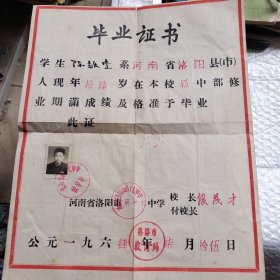 毕业证书
学生 系河南省洛阳县(市)
人现年拾陆岁在本校初中部修
业期满成绩及格准予毕业
此证
河南省洛阳市 中学 校长
付校长
侯茂才
公元一九六肆年柒月拾伍日
洛阳市